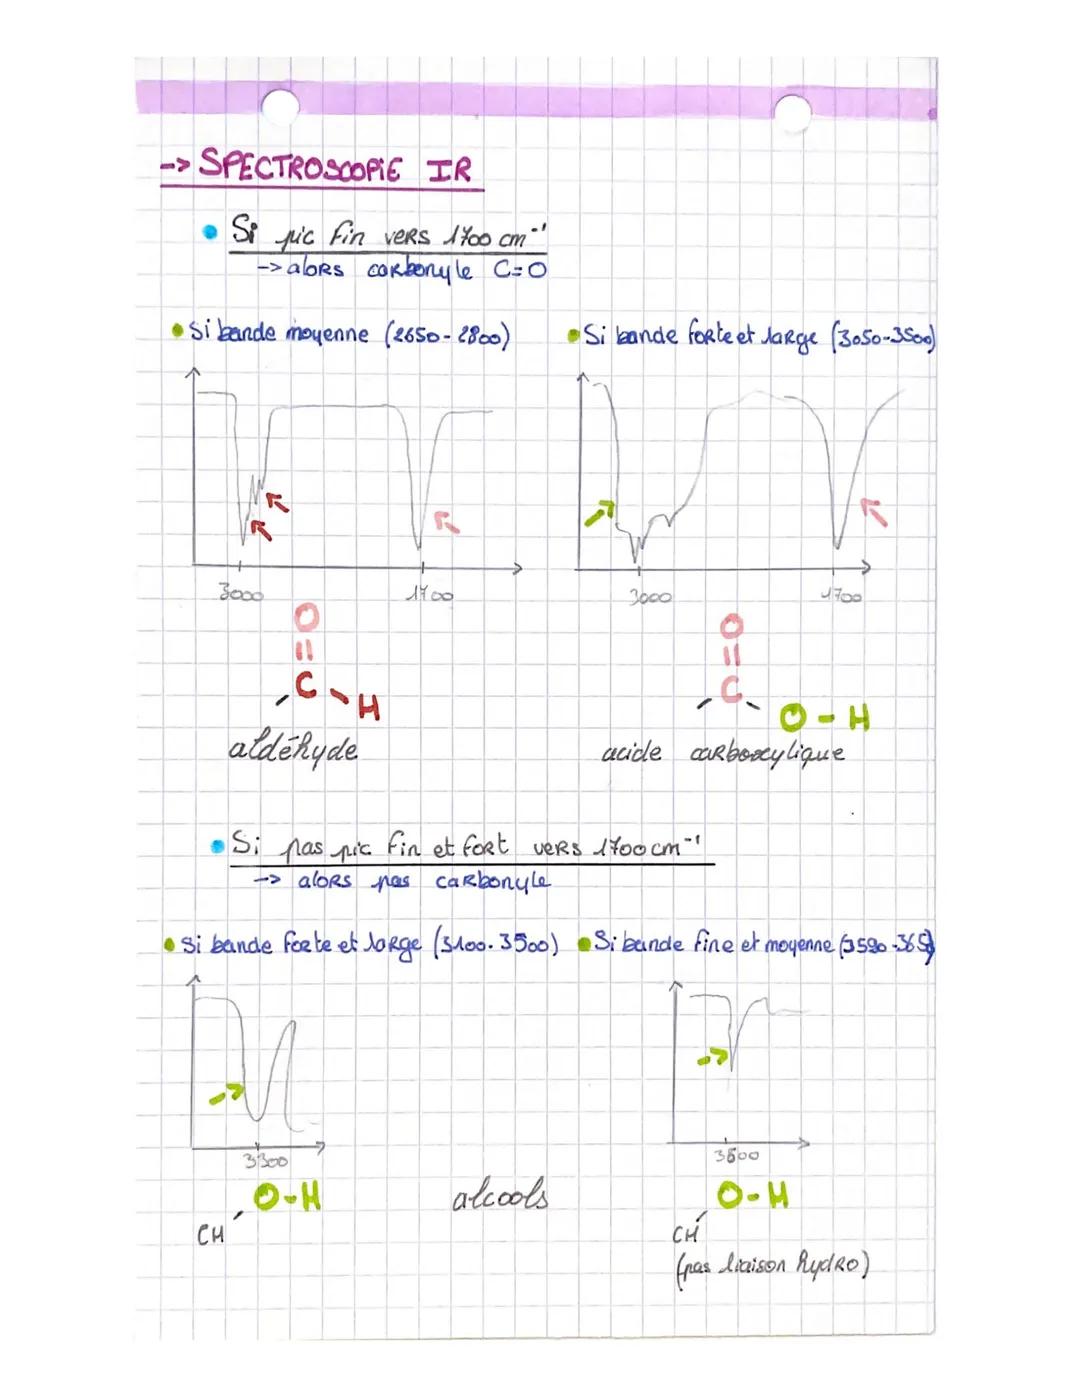 -> SPECTROSCOPIE IR
• Si pic fin vers 1700 cm⁻¹
-> alors carbonyle C=O
• Si bande moyenne (2650-2800)
• Si bande forte et large (3050-3500)
3000 1700
3000 1700
O
||
C
H
aldéhyde
O
||
C
O-H
acide carboxylique
• Si pas pic fin et fort vers 1700 cm⁻¹
-> alors pas carbonyle
• Si bande forte et large (3100-3500)
• Si bande fine et moyenne
3300
3600
O-H
CH
alcools
O-H
CH
(pas liaison hydro)